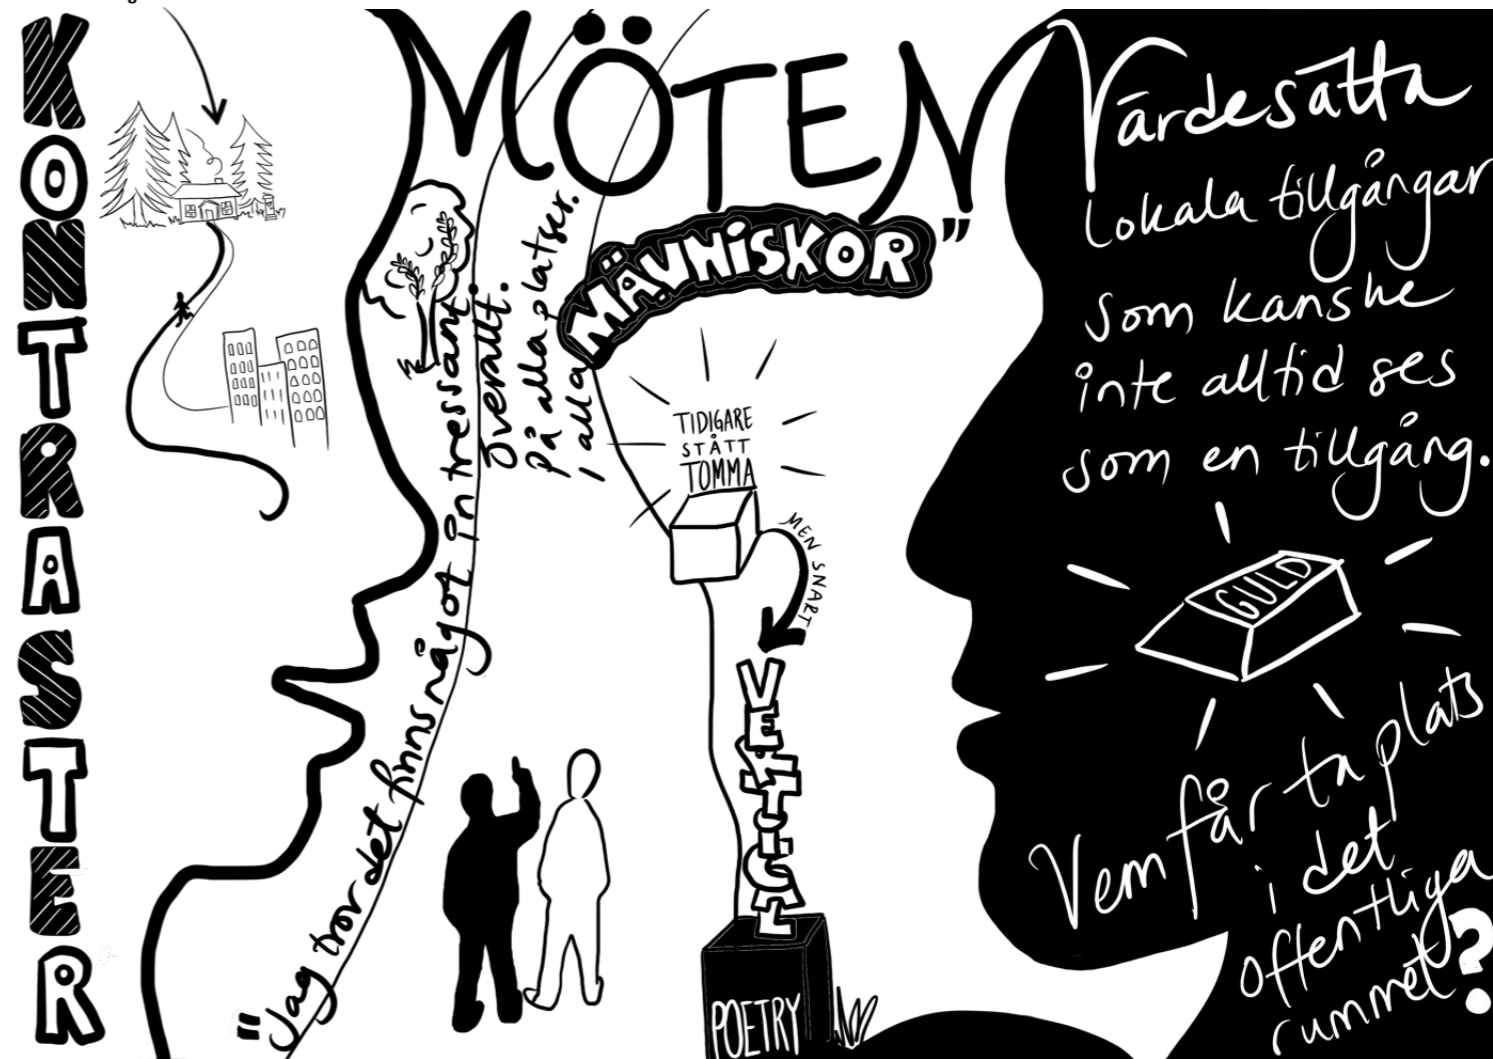 KONTRASTER
MÖTEN
"Jag tror det finns något intressant.
överallt.
på alla platser.
i alla
MÄNNISKOR"
TIDIGARE
STÅTT
TOMMA
MEN SNART
VERTICAL
POETRY
Värdesätta
lokala tillgångar
som kanske
inte alltid ses
som en tillgång.
GULD
Vem får ta plats
i det
offentliga
rummet?